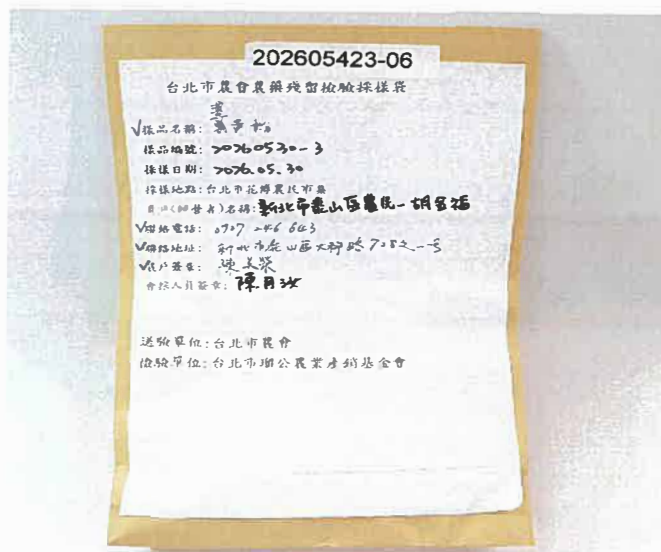 202605423-06
台北市農會農藥殘留檢驗採樣袋
√樣品名稱:
樣品編號: 20260530-3
採樣日期: 2026.05.30
採樣地點: 台北市花博農民市集
農戶(經營者)名稱: 新北市泰山區農民-胡金福
√聯絡電話: 0907 246 643
√聯絡地址: 新北市泰山區大科路728之一号
√農戶簽章: 陳美榮
會採人員簽章: 陳月
送驗單位: 台北市農會
檢驗單位: 台北市瑠公農業產銷基金會